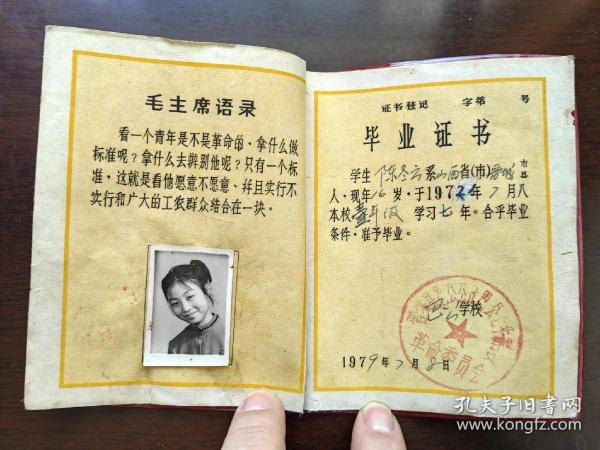 毛主席语录
看一个青年是不是革命的，拿什么做
标准呢？拿什么去辨别他呢？只有一个标
准，这就是看他愿意不愿意、并且实行不
实行和广大的工农群众结合在一块。
证书登记 字第 号
毕业证书
学生 陈冬云系山西省(市) 市县
人，现年16岁，于197 年7月八
本校 年级 学习七年。合乎毕业
条件，准予毕业。
学校
革命委员会
1979年7月8日
孔夫子旧书网
www.kongfz.com